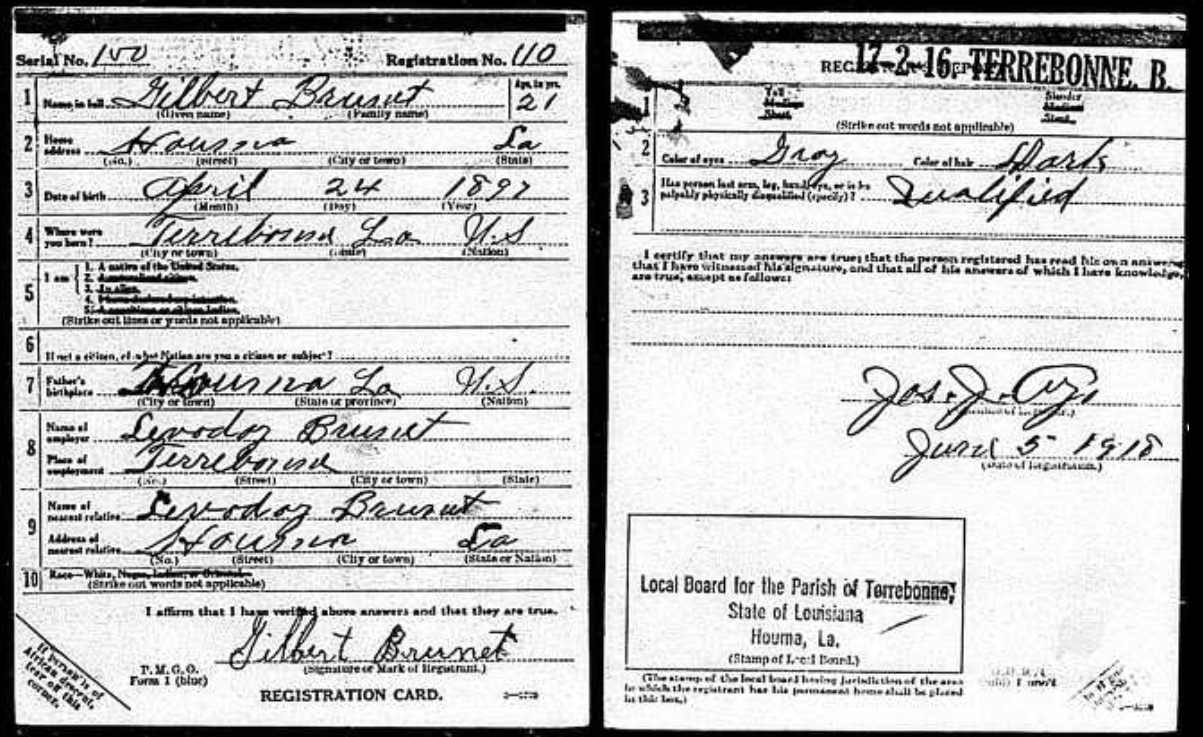 Serial No. 150 Registration No. 110
1 Name in full Gilbert Brunet Age, in yrs. 21
(Given name) (Family name)
2 Home address Houma La
(No.) (Street) (City or town) (State)
3 Date of birth April 24 1897
(Month) (Day) (Year)
4 Where were you born? Terrebonne La U.S
(City or town) (State) (Nation)
5 I am
1. A native of the United States.
2. A naturalized citizen.
3. An alien.
4. I have declared my intention.
5. A noncitizen or citizen Indian.
(Strike out lines or words not applicable)
6 If not a citizen, of what Nation are you a citizen or subject?
7 Father's birthplace Houma La U.S.
(City or town) (State or province) (Nation)
8 Name of employer Brunet
Place of employment Terrebonne
(No.) (Street) (City or town) (State)
9 Name of nearest relative Brunet
Address of nearest relative Houma La
(No.) (Street) (City or town) (State or Nation)
10 Race—White, Negro, Indian, or Oriental
(Strike out words not applicable)
I affirm that I have verified above answers and that they are true.
Gilbert Brunet
(Signature or Mark of Registrant.)
P. M. G. O.
Form 1 (blue)
REGISTRATION CARD.
If person is of
African descent,
tear off this
corner.
17-2-16. TERREBONNE. B.
REGISTRAR'S REPORT
1 Tall Slender
Medium Medium
Short Stout
(Strike out words not applicable)
2 Color of eyes Gray Color of hair Dark
3 Has person lost arm, leg, hand, eye, or is he
palpably physically disqualified (specify)? Qualified
I certify that my answers are true; that the person registered has read his own answers,
that I have witnessed his signature, and that all of his answers of which I have knowledge,
are true, except as follows:
Jos. J.
(Signature of Registrar.)
June 5 1918
(Date of Registration.)
Local Board for the Parish of Terrebonne,
State of Louisiana
Houma, La.
(Stamp of Local Board.)
(The stamp of the local board having jurisdiction of the area
in which the registrant has his permanent home shall be placed
in this box.)